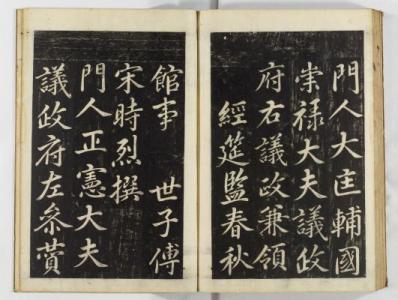 門人大匡輔國
崇祿大夫議政
府右議政兼領
經筵監春秋
館事 世子傅
宋時烈撰
門人正憲大夫
議政府左參贊